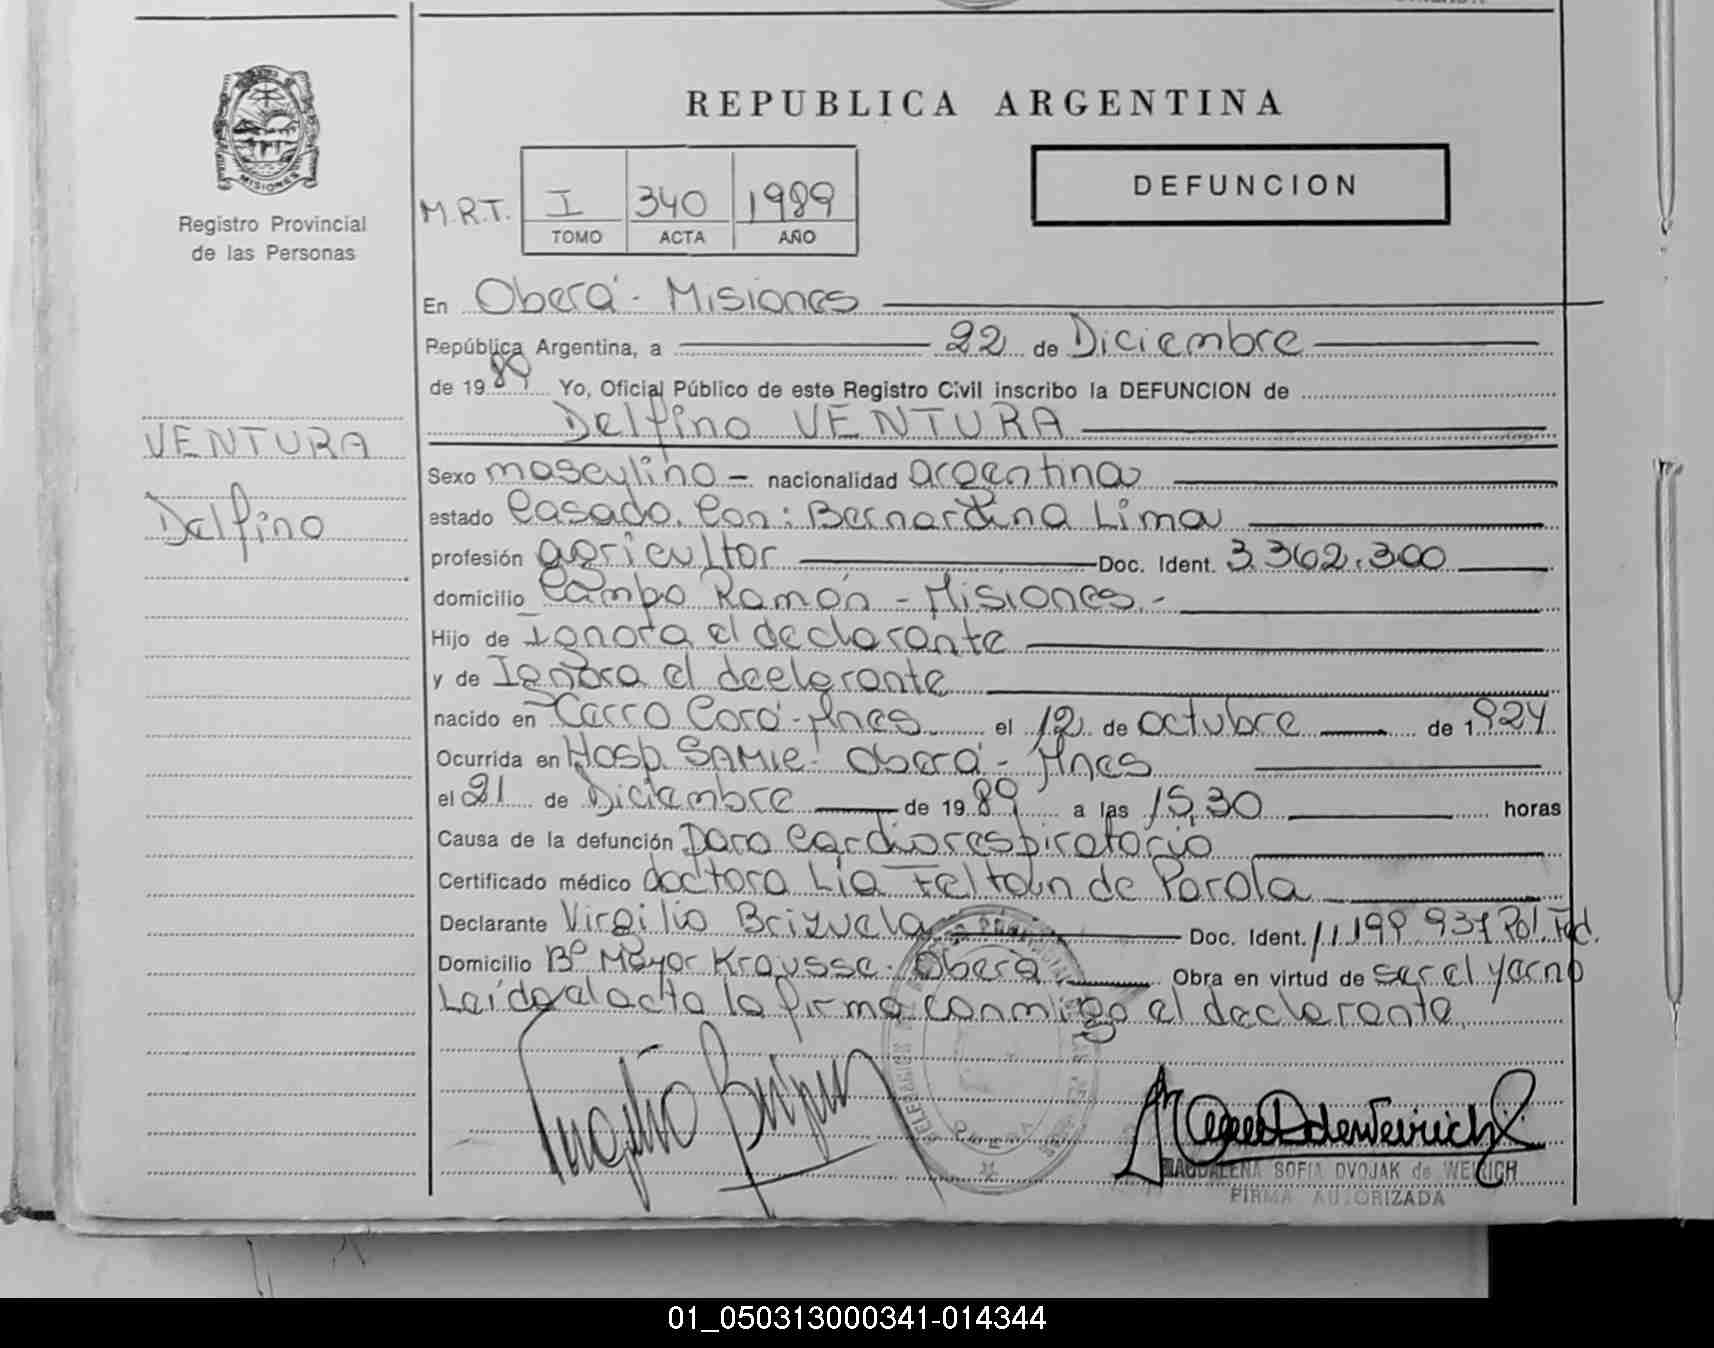 REPUBLICA ARGENTINA
MISIONES
Registro Provincial
de las Personas
M.R.T. I 340 1989
TOMO ACTA AÑO
DEFUNCION
En Oberá - Misiones
República Argentina, a 22 de Diciembre
de 1989 Yo, Oficial Público de este Registro Civil inscribo la DEFUNCION de
Delfino VENTURA
VENTURA
Delfino
Sexo masculino - nacionalidad argentina
estado Casado. Con: Bernardina Lima
profesión agricultor Doc. Ident. 3.362.300
domicilio Campo Ramón - Misiones.-
Hijo de Ignora el declarante
y de Ignora el declarante
nacido en Cerro Corá - Mnes el 12 de octubre de 1924
Ocurrida en Hosp. SAMIC. Oberá - Mnes
el 21 de Diciembre de 1989 a las 15,30 horas
Causa de la defunción Paro Cardiorespiratorio
Certificado médico doctora Lia Feltan de Parola
Declarante Virgilio Brizuela Doc. Ident. 11.199.937 Pol. Fed.
Domicilio Bº Mayor Krausse. Oberá Obra en virtud de ser el yerno
Leída el acta la firma conmigo el declarante
MAGDALENA SOFIA DVOJAK de WEIRICH
FIRMA AUTORIZADA
01_050313000341-014344